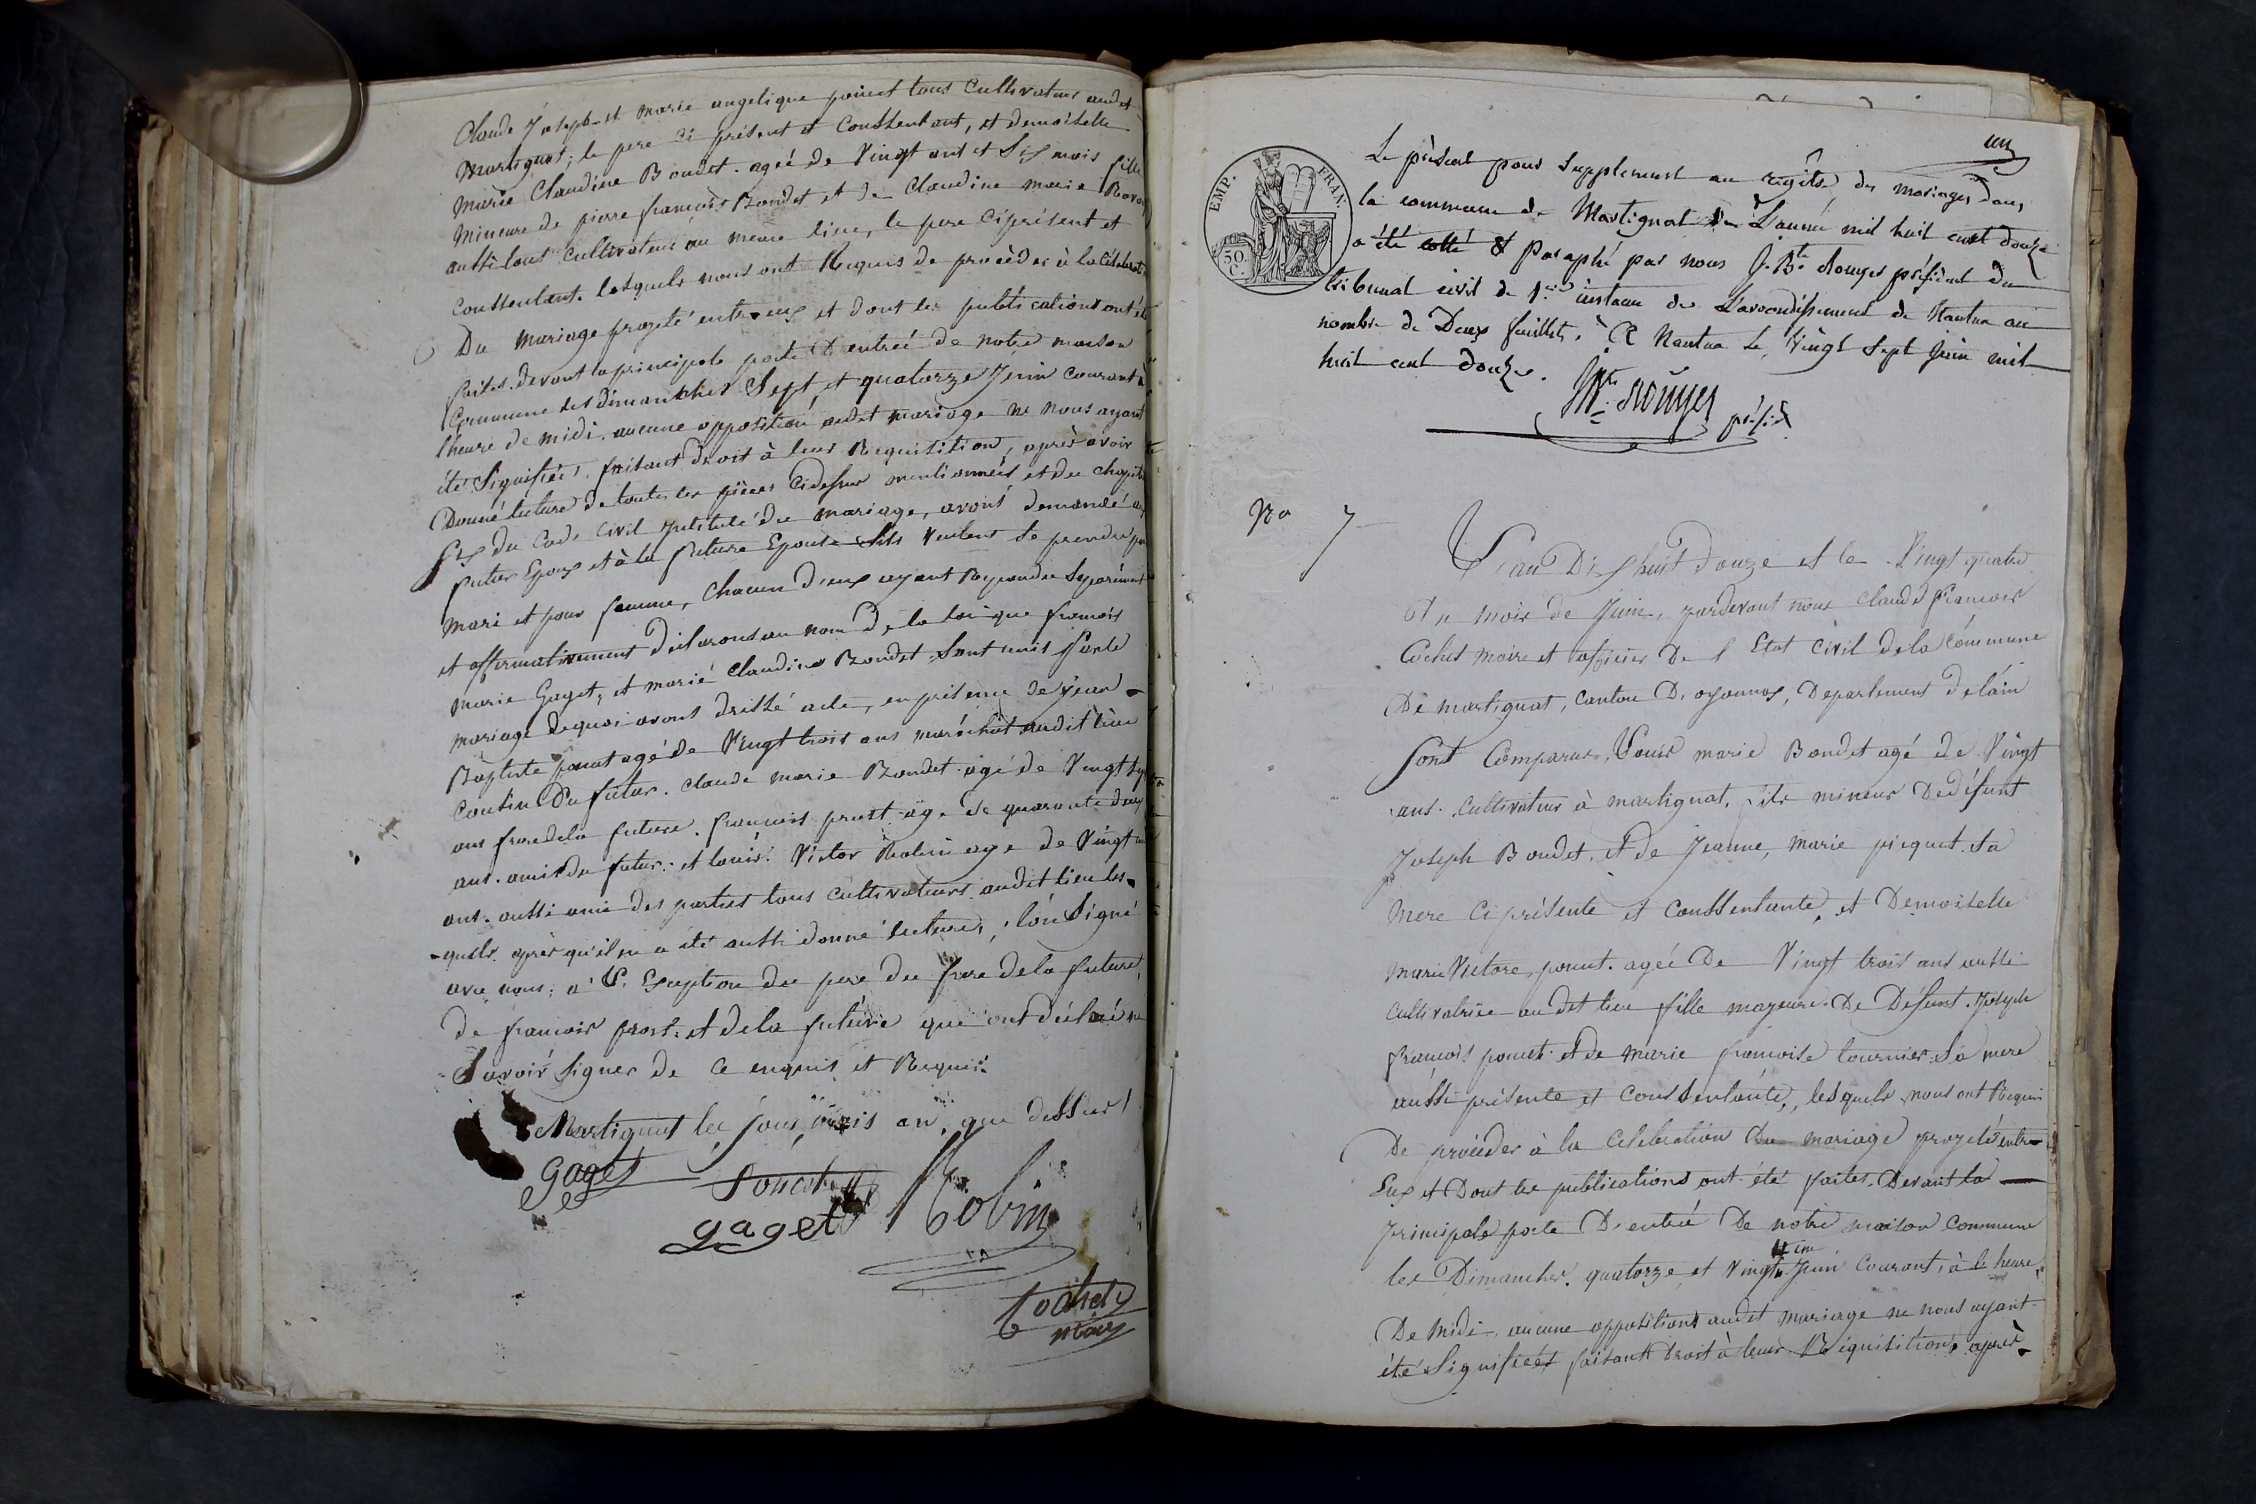 Claude Joseph et marie angelique poncet tous Cultivateurs audit
Martignat; le pere ci présent et Conssentant, et demoiselle
marie Claudine Bondet. ageé de Vingt ans et Six mois fille
Mineure de pierre francois Bondet et de Claudine marie
aussi tous Cultivateurs au meme lieu, le pere Ciprésent et
Conssentant. lesquels nous ont Requis de procèder à la
Du mariage projeté entr-eux et dont les publications ont été
faites. devant la principale porte D'entreé de notre maison
Commune les dimanches Sept, et quatorze Juin Courant à
l'heure de midi. aucune opposition audit mariage ne nous ayant
été Signifieé, faisant droit à leur Requisition, après avoir
Donné lecture de toutes les pièces Cidessus mentionneés et du chapitre
Six du Code Civil Intitulé du mariage, avons demandé au
futur Epoux et à la future Epouse Sils Veulent Se prendre pour
mari et pour femme, Chacun D'eux ayant Repondu Séparément
et affirmativement Déclarons au nom De la loi que francois
marie Gaget, et marie Claudine Bondet Sont unis Par le
mariage dequoi avons dréssé acte, en présence de jean
Baptiste ponat agé de Vingt trois ans maréchal audit lieu
Cousin Du futur. Claude marie Bondet agé de Vingt
ans frere de la future. francois prost age de quarante deux
ans. ami du futur. et louis Victor Robin age de Vingt
ans. aussi ami des parties tous cultivateurs audit lieu les-
-quels après qu'il en a été aussi donné lecture, l'ont Signé
avec nous; a' L'Exeption du pere du frere de la future,
de francois prost. et de la future que ont déclaré ne
Savoir Signer de Ce enquis et Requis.
Martignat les jour, mois an, que dessus!
gaget Poncet
gaget Robin
Cochet
maire
un
Le présent pour Supplement au régitre des mariages dans
la commune de Martignat de L'année mil huit cent douze
a été cotté & Paraphé par nous J. Bte. Rouyer président du
tribunal civil de 1ere instance de L'arrondissement de Nantua au
nombre de Deux feuillets. À Nantua Le Vingt Sept Juin mil
huit cent douze.
JBte. Rouyer
présidt
EMP. FRAN.
50. C.
No 7
L'an Dix huit douze et le Vingt quatre
Du mois de Juin, pardevant nous Claude francois
Cochet maire et officier De l'Etat Civil de la Commune
De martignat, Canton D'oyonnax, Departement de lain
Sont Comparus, Louis marie Bondet agé de Vingt
ans. Cultivateur à martignat, fils mineur De défunt
Joseph Bondet, et de Jeanne, marie picquet. Sa
Mere Ci présente et Conssentante, et Demoiselle
marie Victore, poncet. ageé De Vingt trois ans aussi
Cultivatrice au dit lieu fille majeure. De Défunt. Joseph
francois poncet et de marie francoise tournier. Sa mere
aussi présente et Conssentante, lesquels nous ont Requis
De procèder à la Celebration du mariage projeté entre
Eux et Dont les publications ont été faites. Devant la
Principale porte D'entreé De notre maison Commune
4 im
les Dimanches. quatorze et Vingt Juin Courant, à l'heure,
De Midi, aucune opposition audit mariage ne nous ayant
été Signifieés faisant droit à leur Réquisition, après